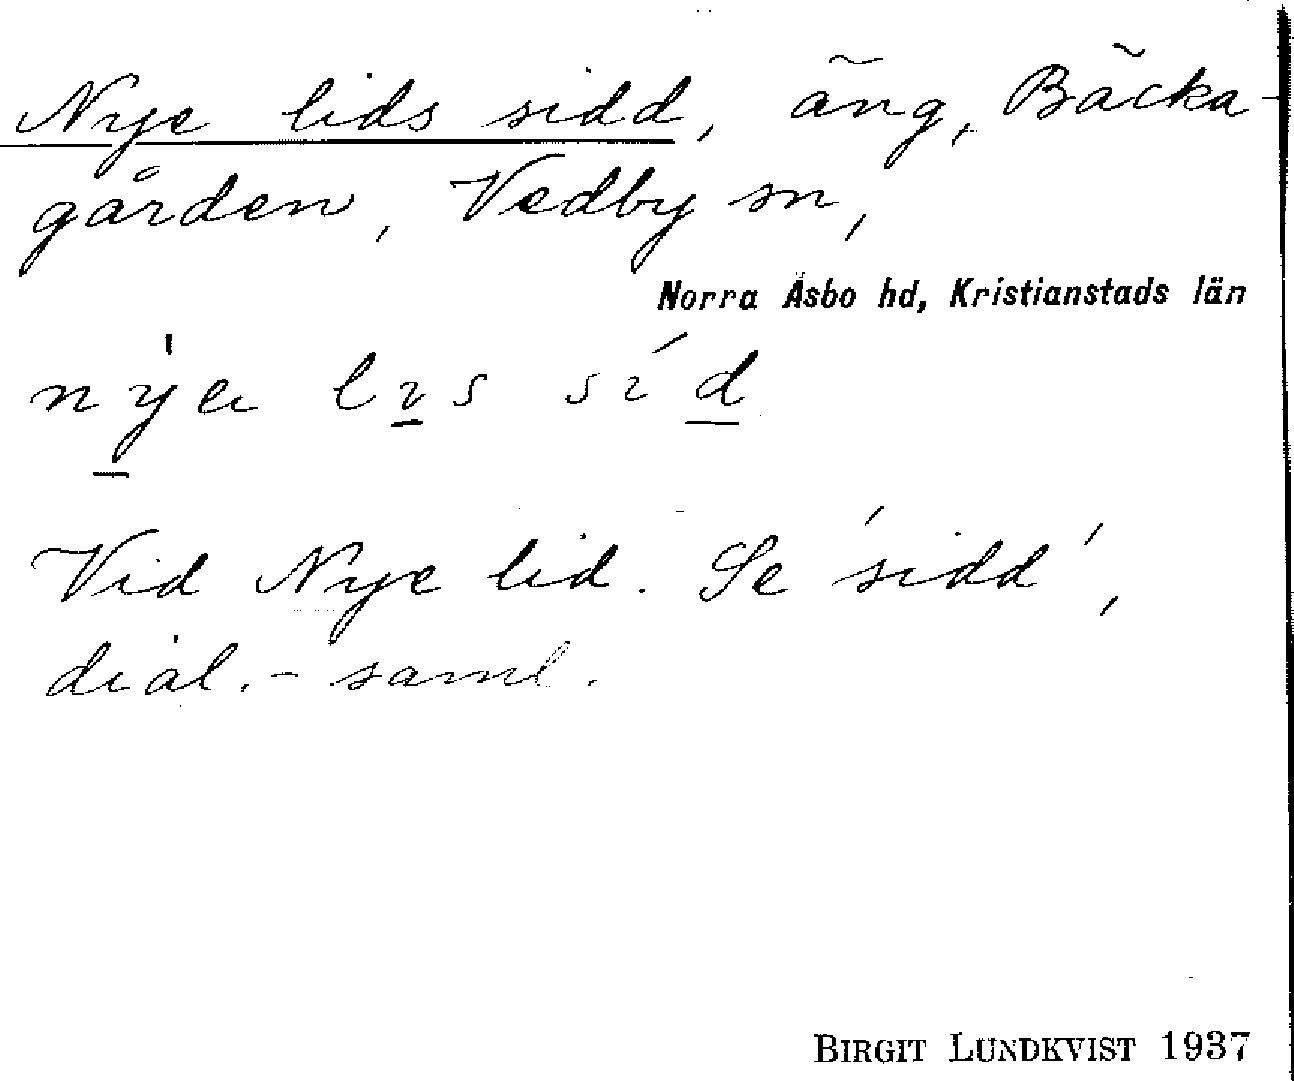 Nye lids sidd, äng, Bäcka-
gården, Vedby sn,
Norra Åsbo hd, Kristianstads län
Vid Nye lid. Se 'sidd',
dial.-saml.
BIRGIT LUNDKVIST 1937